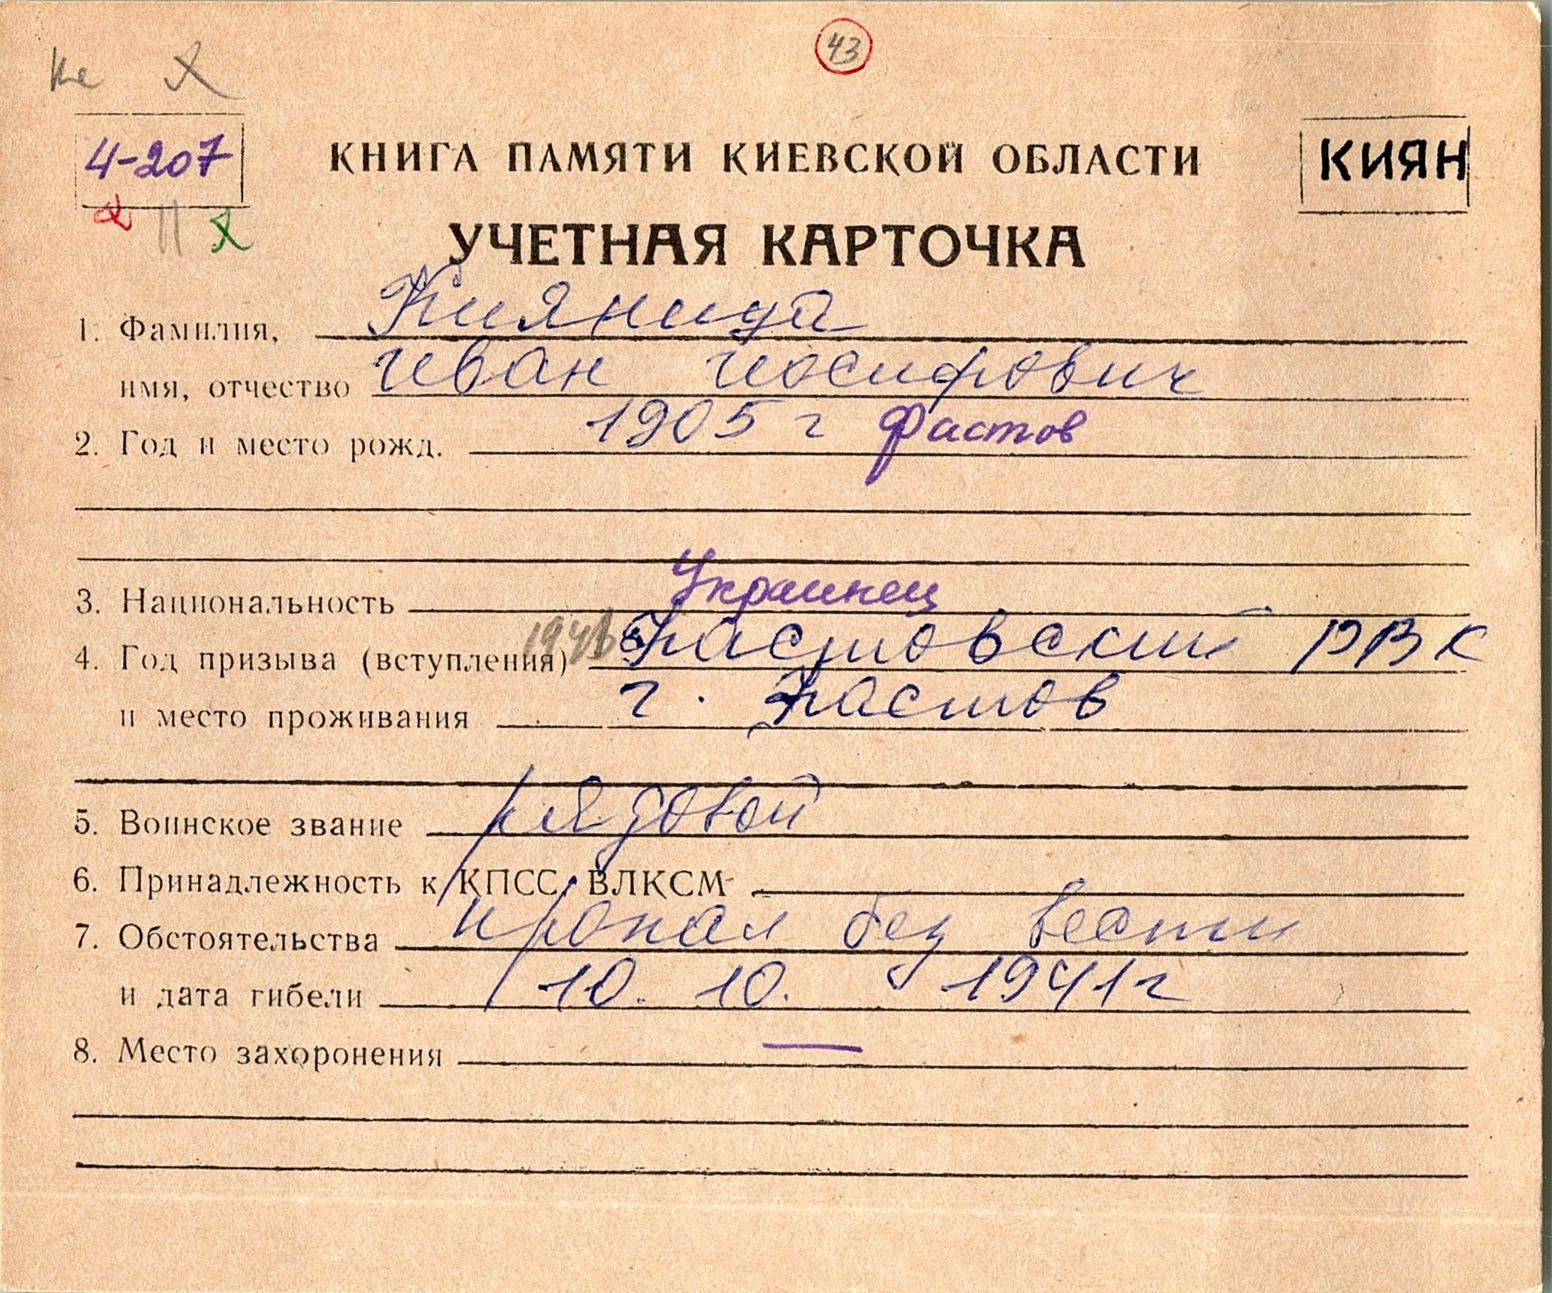 43
4-207
КНИГА ПАМЯТИ КИЕВСКОЙ ОБЛАСТИ
КИЯН
УЧЕТНАЯ КАРТОЧКА
1. Фамилия, Кияница
имя, отчество Иван Иосифович
2. Год и место рожд. 1905 г Фастов
3. Национальность Украинец
4. Год призыва (вступления) Фастовский РВК
и место проживания г. Фастов
5. Воинское звание рядовой
6. Принадлежность к КПСС, ВЛКСМ
7. Обстоятельства пропал без вести
и дата гибели 10. 10. 1941г
8. Место захоронения —